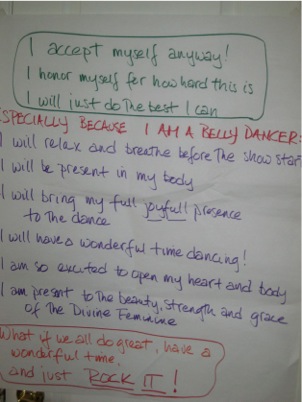 I accept myself anyway!
I honor myself for how hard this is
I will just do the best I can
ESPECIALLY BECAUSE I AM A BELLY DANCER:
I will relax and breathe before the show star
I will be present in my body
I will bring my full joyfull presence
to the dance
I will have a wonderful time dancing!
I am so excited to open my heart and body
I am present to the beauty, strength and grace
of the Divine Feminine
What if we all do great, have a
wonderful time,
and just ROCK IT!